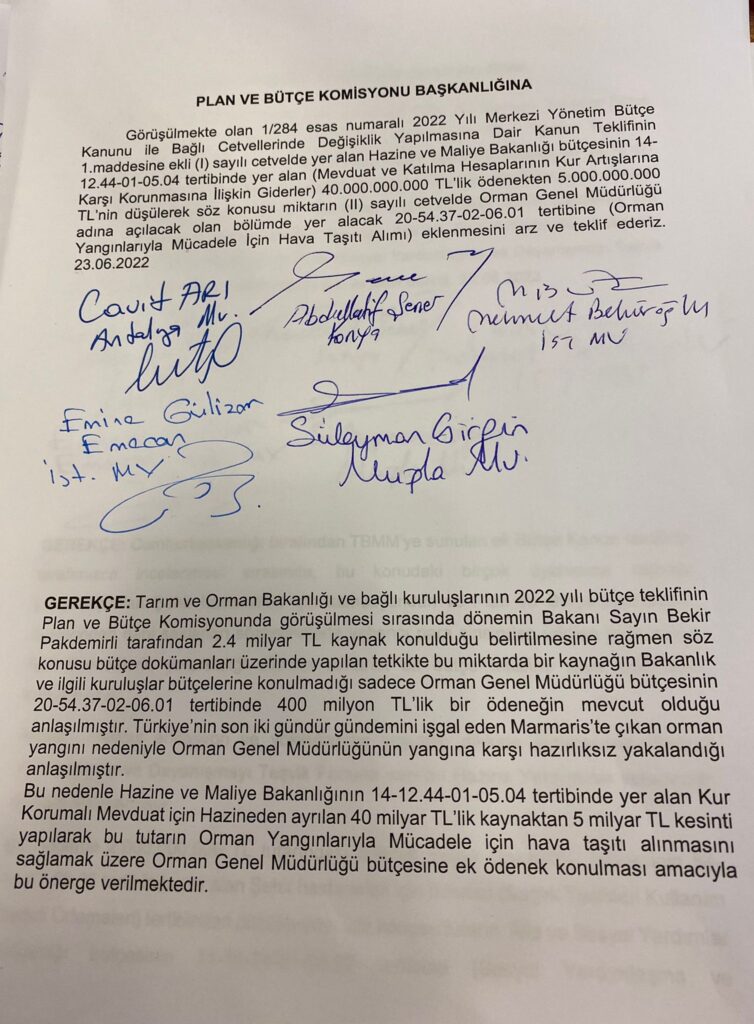 PLAN VE BÜTÇE KOMİSYONU BAŞKANLIĞINA
Görüşülmekte olan 1/284 esas numaralı 2022 Yılı Merkezi Yönetim Bütçe
Kanunu ile Bağlı Cetvellerinde Değişiklik Yapılmasına Dair Kanun Teklifinin
1.maddesine ekli (I) sayılı cetvelde yer alan Hazine ve Maliye Bakanlığı bütçesinin 14-
12.44-01-05.04 tertibinde yer alan (Mevduat ve Katılma Hesaplarının Kur Artışlarına
Karşı Korunmasına İlişkin Giderler) 40.000.000.000 TL'lik ödenekten 5.000.000.000
TL'nin düşülerek söz konusu miktarın (II) sayılı cetvelde Orman Genel Müdürlüğü
adına açılacak olan bölümde yer alacak 20-54.37-02-06.01 tertibine (Orman
Yangınlarıyla Mücadele İçin Hava Taşıtı Alımı) eklenmesini arz ve teklif ederiz.
23.06.2022
Cavit ARI
Antalya Mv.
Abdullatif Şener
Konya
Mehmet Bekaroğlu
İST MV
Emine Gülizar
Emecan
İst. MV
Süleyman Girgin
Muğla Mv.
GEREKÇE: Tarım ve Orman Bakanlığı ve bağlı kuruluşlarının 2022 yılı bütçe teklifinin
Plan ve Bütçe Komisyonunda görüşülmesi sırasında dönemin Bakanı Sayın Bekir
Pakdemirli tarafından 2.4 milyar TL kaynak konulduğu belirtilmesine rağmen söz
konusu bütçe dokümanları üzerinde yapılan tetkikte bu miktarda bir kaynağın Bakanlık
ve ilgili kuruluşlar bütçelerine konulmadığı sadece Orman Genel Müdürlüğü bütçesinin
20-54.37-02-06.01 tertibinde 400 milyon TL'lik bir ödeneğin mevcut olduğu
anlaşılmıştır. Türkiye'nin son iki gündür gündemini işgal eden Marmaris'te çıkan orman
yangını nedeniyle Orman Genel Müdürlüğünün yangına karşı hazırlıksız yakalandığı
anlaşılmıştır.
Bu nedenle Hazine ve Maliye Bakanlığının 14-12.44-01-05.04 tertibinde yer alan Kur
Korumalı Mevduat için Hazineden ayrılan 40 milyar TL'lik kaynaktan 5 milyar TL kesinti
yapılarak bu tutarın Orman Yangınlarıyla Mücadele için hava taşıtı alınmasını
sağlamak üzere Orman Genel Müdürlüğü bütçesine ek ödenek konulması amacıyla
bu önerge verilmektedir.